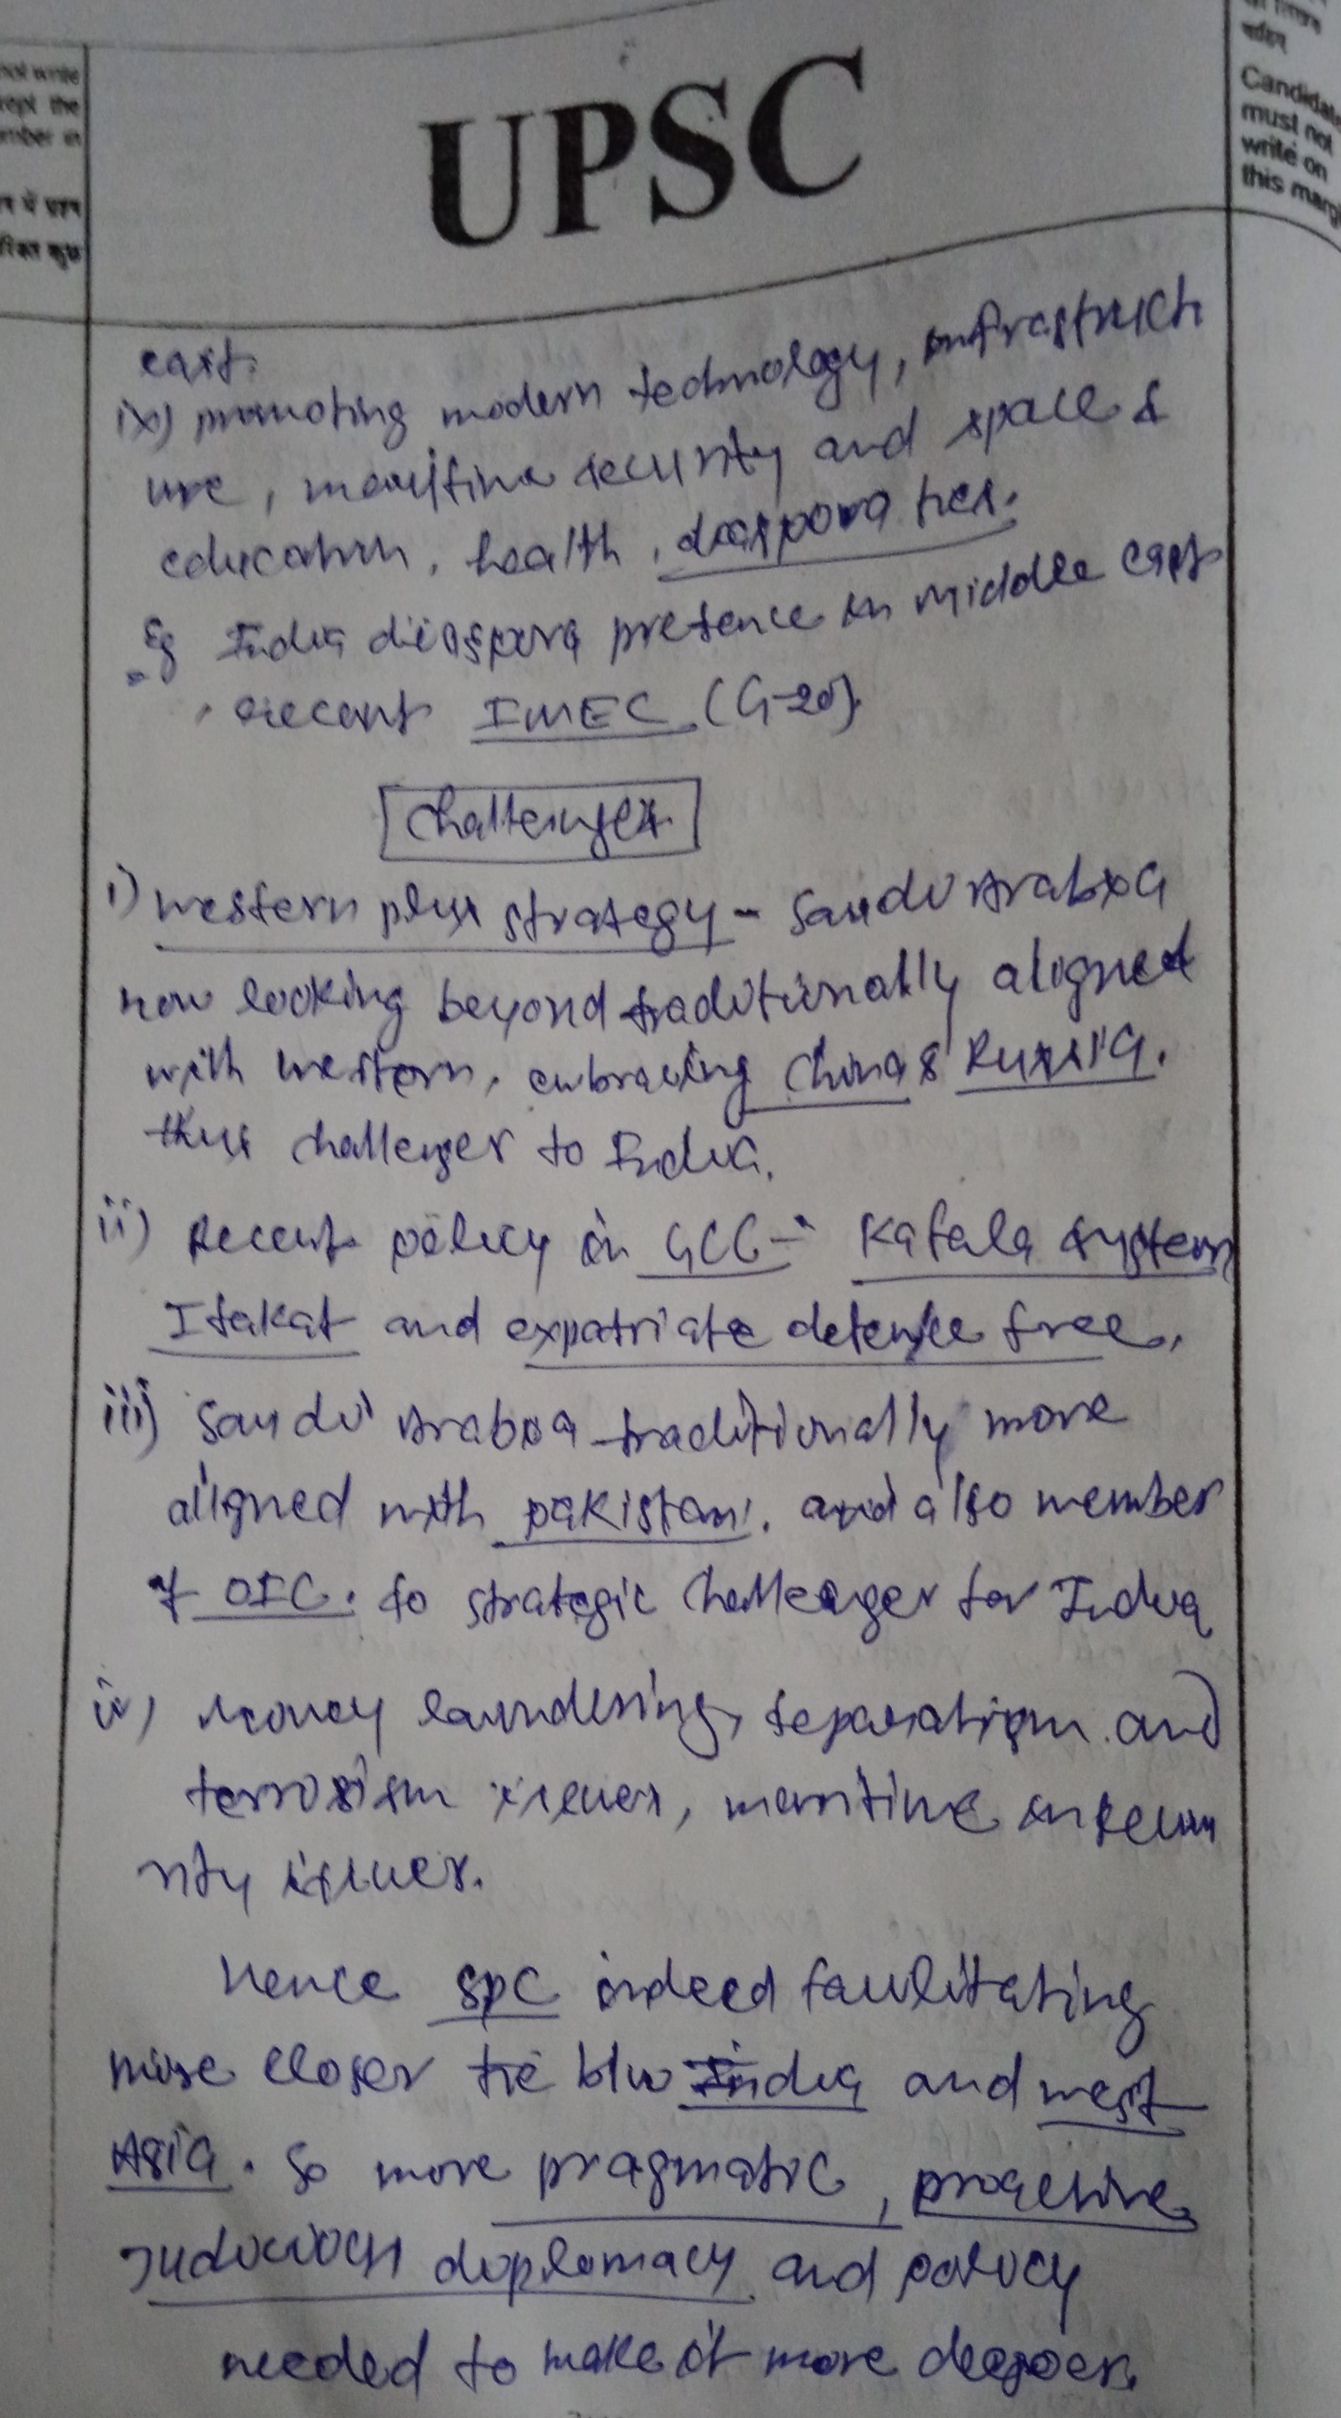 not write
cept the
mber in
में प्रश्न
रिक्त कुछ
UPSC
Candidate
must not
write on
this margin
east.
ix) promoting modern technology, infrastruct
ure, maritime security and space &
education, health, diaspora ties.
Eg India diaspora presence in middle east
recent IMEC (G-20).
Challenges
i) western plus strategy - Saudi Arabia
now looking beyond traditionally aligned
with western, embracing China & Russia.
thus challenges to India.
ii) Recent policy in GCC - Kafala system
Itakat and expatriate detense free,
iii) Saudi Arabia traditionally more
aligned with pakistan. and also member
of OIC. so strategic challenges for India
iv) Money laundering, separatism and
terrorism issues, maritime insecu
rity issues.
Hence SPC indeed facilitating
more closer tie b/w India and west
Asia. So more pragmatic, proactive
judicious diplomacy and policy
needed to make it more deeper.